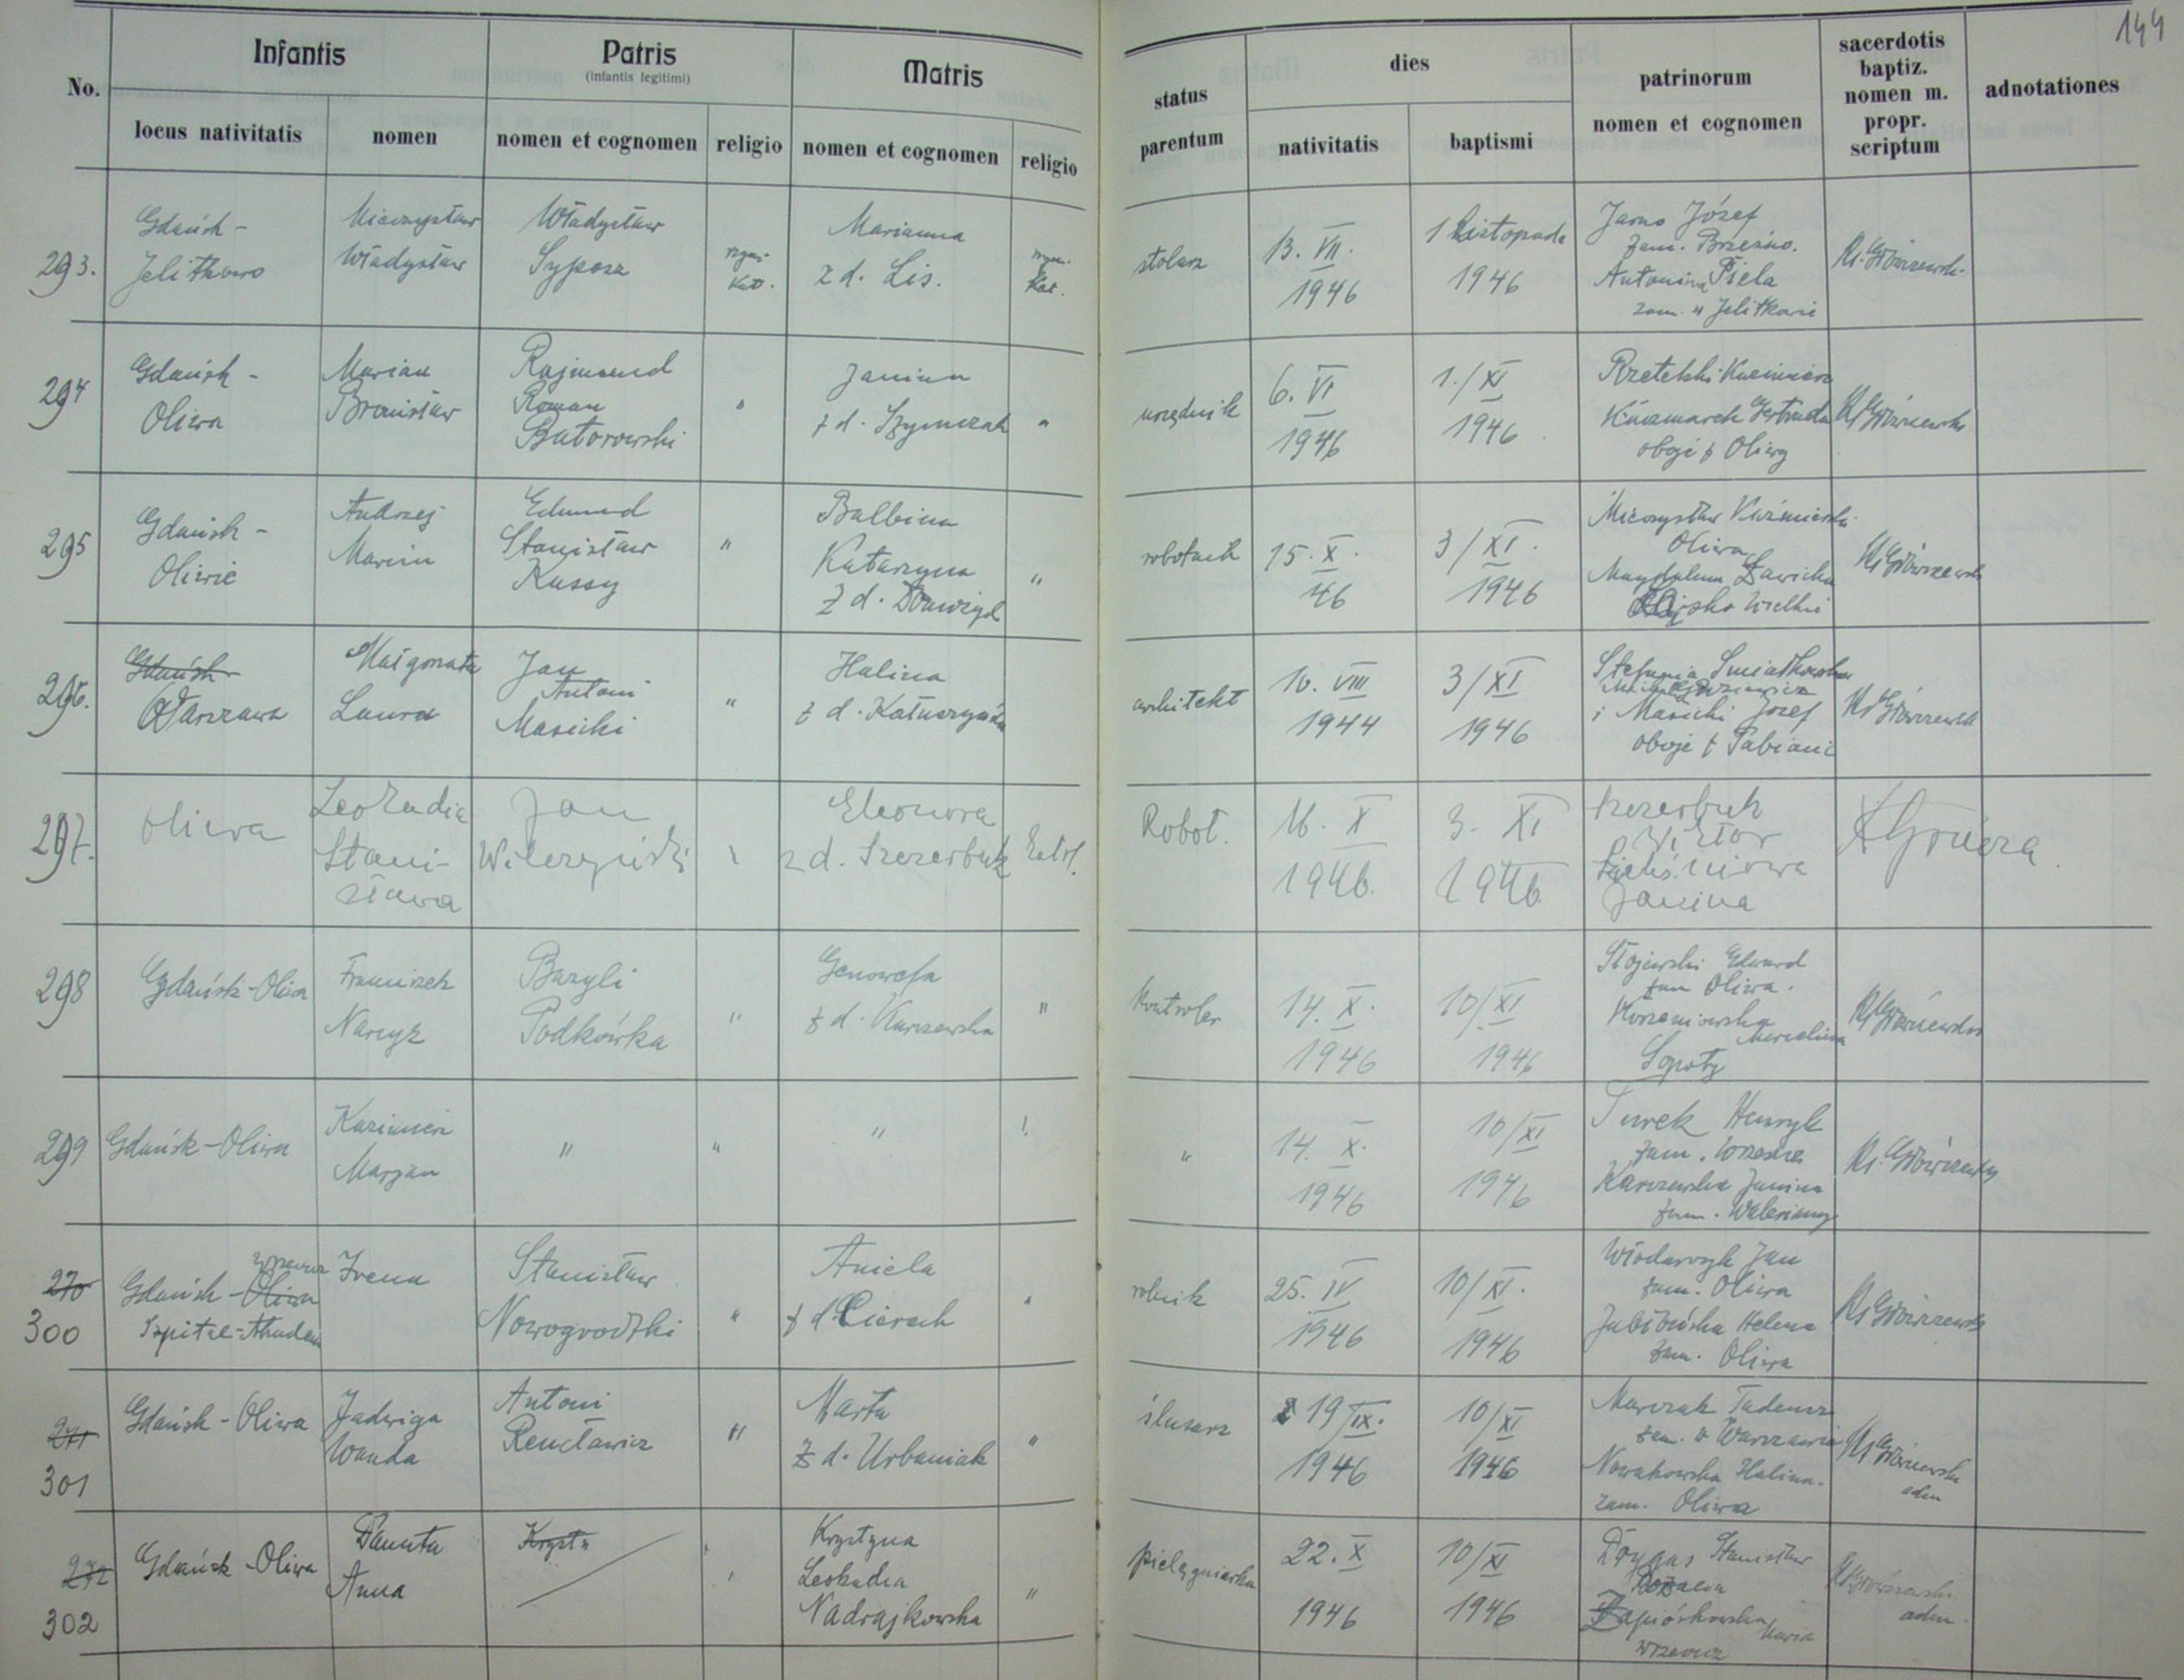 144
No.
Infantis
Patris
(infantis legitimi)
Matris
locus nativitatis
nomen
nomen et cognomen
religio
nomen et cognomen
religio
status
parentum
dies
nativitatis
baptismi
patrinorum
nomen et cognomen
sacerdotis
baptiz.
nomen m.
propr.
scriptum
adnotationes
293.
Gdańsk -
Jelitkowo
Mieczysław
Władysław
Władysław
Syposz
rzym.
kat.
Marianna
z d. Lis.
rzym.
kat.
stolarz
13. VII.
1946
1 Listopada
1946
Józef
zam. Brzeźno.
Antonina Piela
zam. w Jelitkowie
294
Gdańsk -
Oliwa
Marian
Bronisław
Rajmund
Roman
Butorowski
"
Janina
z d. Szymczak
"
urzędnik
6. VI
1946
1./XI
1946
Kazimierz
Kaczmarek Gertruda
oboje z Oliwy
295
Gdańsk -
Oliwie
Andrzej
Marian
Edmund
Stanisław
Kassy
"
Balbina
Katarzyna
z d.
"
robotnik
15. X.
46
3/XI.
1946
Mieczysław
Oliwa
Magdalena
296.
Gdańsk
Warszawa
Małgorzata
Laura
Jan
Antoni
Masicki
"
Halina
z d.
architekt
10. VIII
1944
3/XI
1946
Stefania
i Masicki Józef
oboje z
297.
Oliwa
Leokadia
Stani-
sława
Jan
Wilczyński
Eleonora
z d. Szczerbuk
katol.
Robot.
16. X
1946.
3. XI
1946
Szczerbuk
Wiktor
Janina
298
Gdańsk-Oliwa
Franciszek
Narcyz
Bazyli
Podkówka
"
Genowefa
z d. Karczewska
"
kontroler
14. X.
1946
10/XI
1946
Stojewski Edward
zam Oliwa.
Korzeniowska
Marcelina
Sopoty
299
Gdańsk-Oliwa
Kazimierz
Marjan
"
"
"
"
14. X.
1946
10/XI
1946
Turek Henryk
zam.
Karczewska Janina
zam.
270
300
Gdańsk - Oliwa
Szpital-Akadem
Irena
Stanisław
Nowogrodzki
"
Aniela
z d. Cierach
"
rolnik
25. IV
1946
10/XI.
1946
Włodarczyk Jan
zam. Oliwa
Helena
zam. Oliwa
271
301
Gdańsk - Oliwa
Jadwiga
Wanda
Antoni
Rencławicz
"
Marta
z d. Urbaniak
"
ślusarz
19/IX.
1946
10/XI
1946
Marczak Tadeusz
zam. w Warszawie
Nowakowska Halina.
zam. Oliwa
adm
272
302
Gdańsk - Oliwa
Danuta
Anna
Krysty
Krystyna
Leokadia
Nadrajkowska
"
pielęgniarka
22. X
1946
10/XI
1946
Drygas Stanisław
Maria
Wrzeszcz
adm.